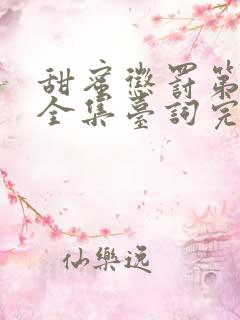 甜蜜懲罰第
全集臺詞完
仙樂逸